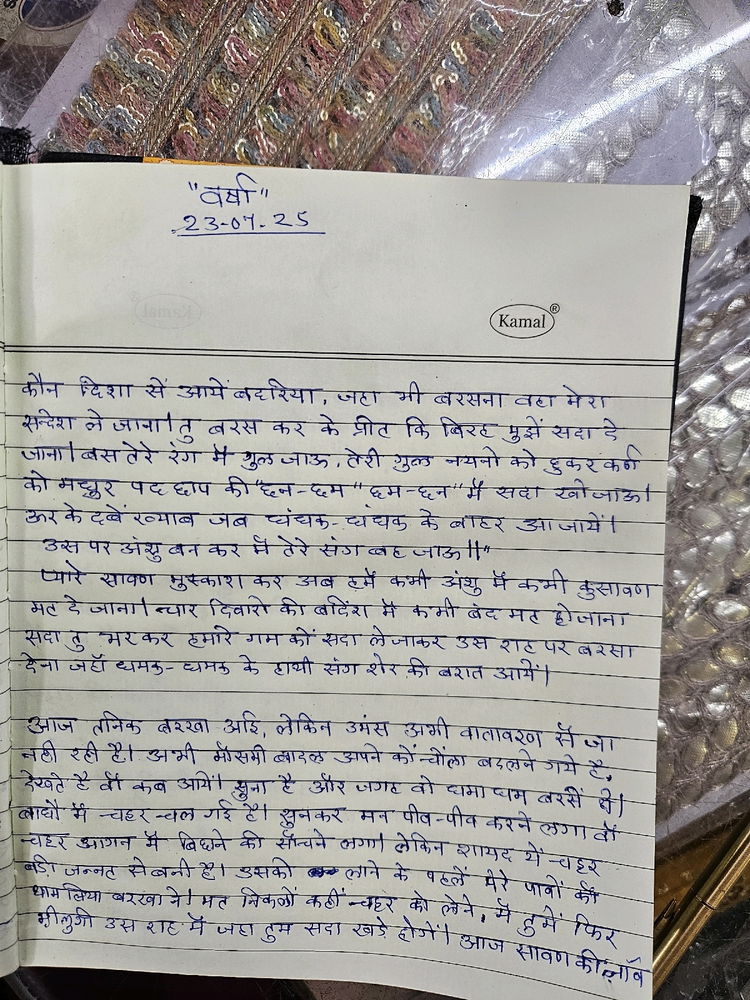 "वर्षा"
23-07-25
Kamal®
कौन दिशा सें आयें बदरिया, जहा भी बरसना वहा मेरा
सन्देश ले जाना। तु बरस कर के प्रीत कि बिरह मुझें सदा दे
जाना। बस तेरे रंग मैं घुल जाऊ, तेरी घुल नयनो को छुकर कर्ण
को मधुर पद छाप की "छन-छम" "छम-छन" मैं सदा खो जाऊ।
ऊर के दबें ख्याब जब धंधक-धंधक के बाहर आ जायें।
उस पर अंशु बन कर मैं तेरे संग बह जाऊ॥"
प्यारे सावण मुस्कारा कर अब हमें कभी अंशु मैं कभी कुसावण
मत दे जाना। च्यार दिवारो की बदिंश मैं कभी बंद मत हो जाना
सदा तु भर कर हमारे गम कों सदा ले जाकर उस राह पर बरसा
देना जहाँ धमक-धमक के हाथी संग शेर की बरात आयें।
आज तनिक बरखा आई, लेकिन उमंस अभी वातावरण सें जा
नही रही है। अभी मौसमी बादल अपने कों चोंला बदलने गये है,
देखते है वों कब आयें। सुना है और जगह वो धमा धम बरसें है।
बाघों में चहर चल गई है। सुनकर मन पीव-पीव करने लगा वों
चहर आगन मैं बिछने की सोंचने लगा। लेकिन शायद यें चहर
बडी जन्नत सें बनी है। उसको लाने के पहलें मेरे पावों कों
थाम लिया बरखा ने। मत निकलों कहीं चहर को लेने, मैं तुमें फिर
मीलुगी उस राह मैं जहा तुम सदा खडे होगें। आज सावण की नॉव